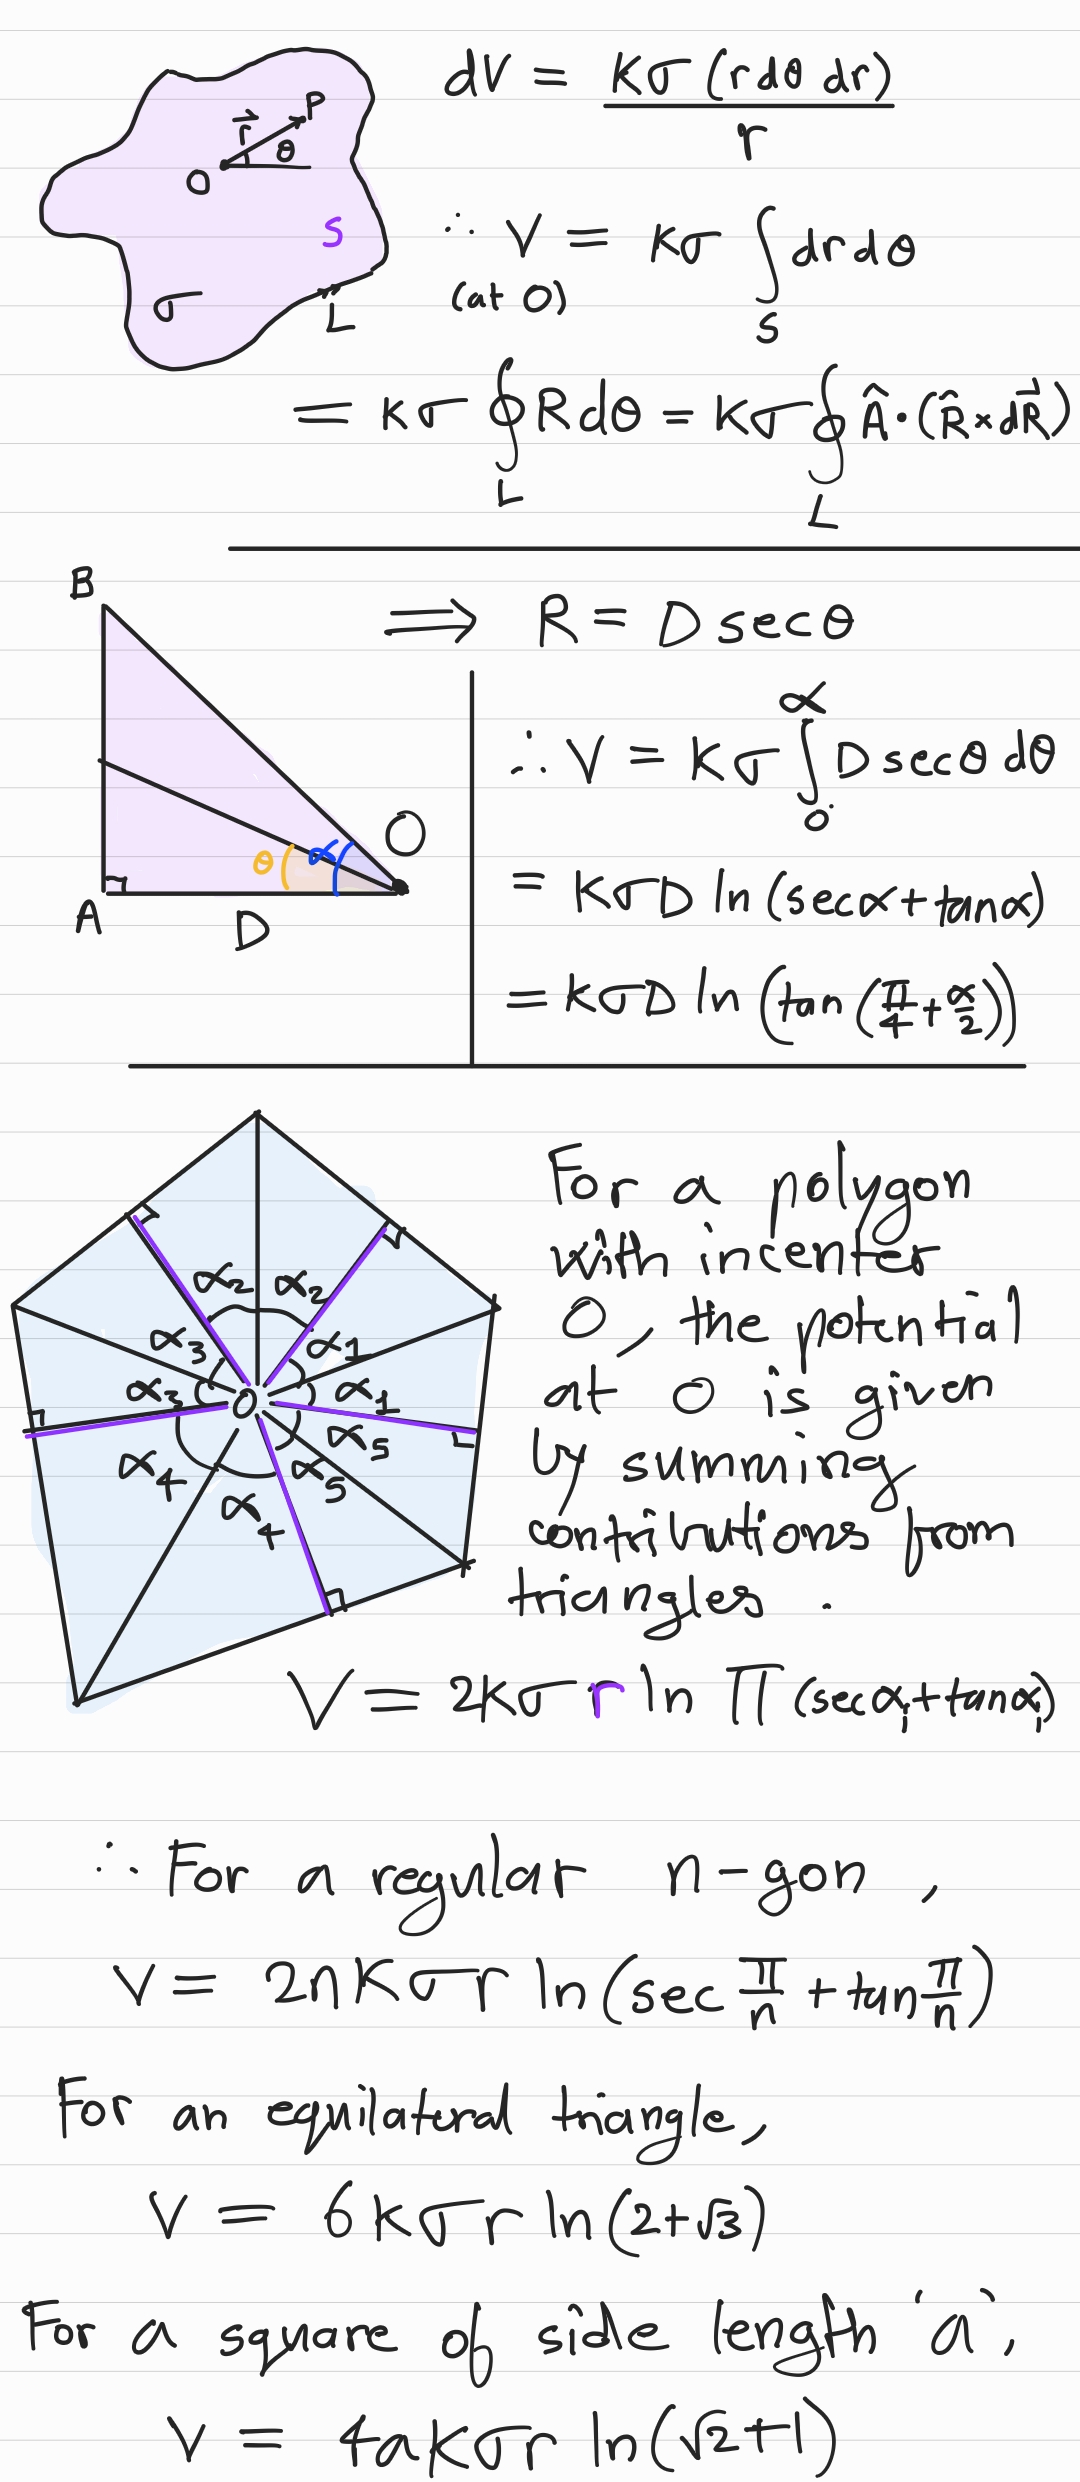 dV = Kσ (r dθ dr) / r
P
r⃗
θ
O
S
σ
L
∴ V = Kσ ∫_S dr dθ
(at O)
= Kσ ∮_L R dθ = Kσ ∮_L Â·(R̂ × dR⃗)
B
⟹ R = D secθ
O
θ
α
A
D
∴ V = Kσ ∫_0^α D secθ dθ
= KσD ln (secα + tanα)
= KσD ln (tan (π/4 + α/2))
α2 α2
α3 α1
α3 O α1
α4 α5
α4 α5
For a polygon
with incenter
O, the potential
at O is given
by summing
contributions from
triangles.
V = 2Kσ r ln Π (secαi + tanαi)
∴ For a regular n-gon,
V = 2nKσr ln(sec π/n + tan π/n)
For an equilateral triangle,
V = 6Kσr ln(2+√3)
For a square of side length 'a',
V = 4aKσr ln(√2+1)